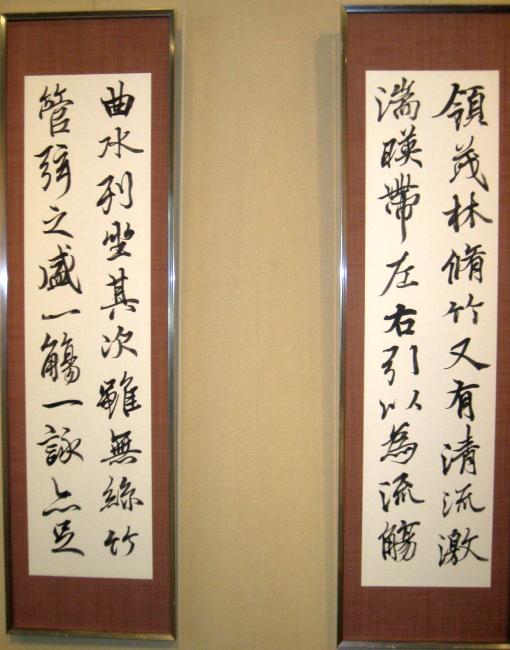 領茂林脩竹又有清流激
湍暎帶左右引以為流觴
曲水列坐其次雖無絲竹
管弦之盛一觴一詠亦足